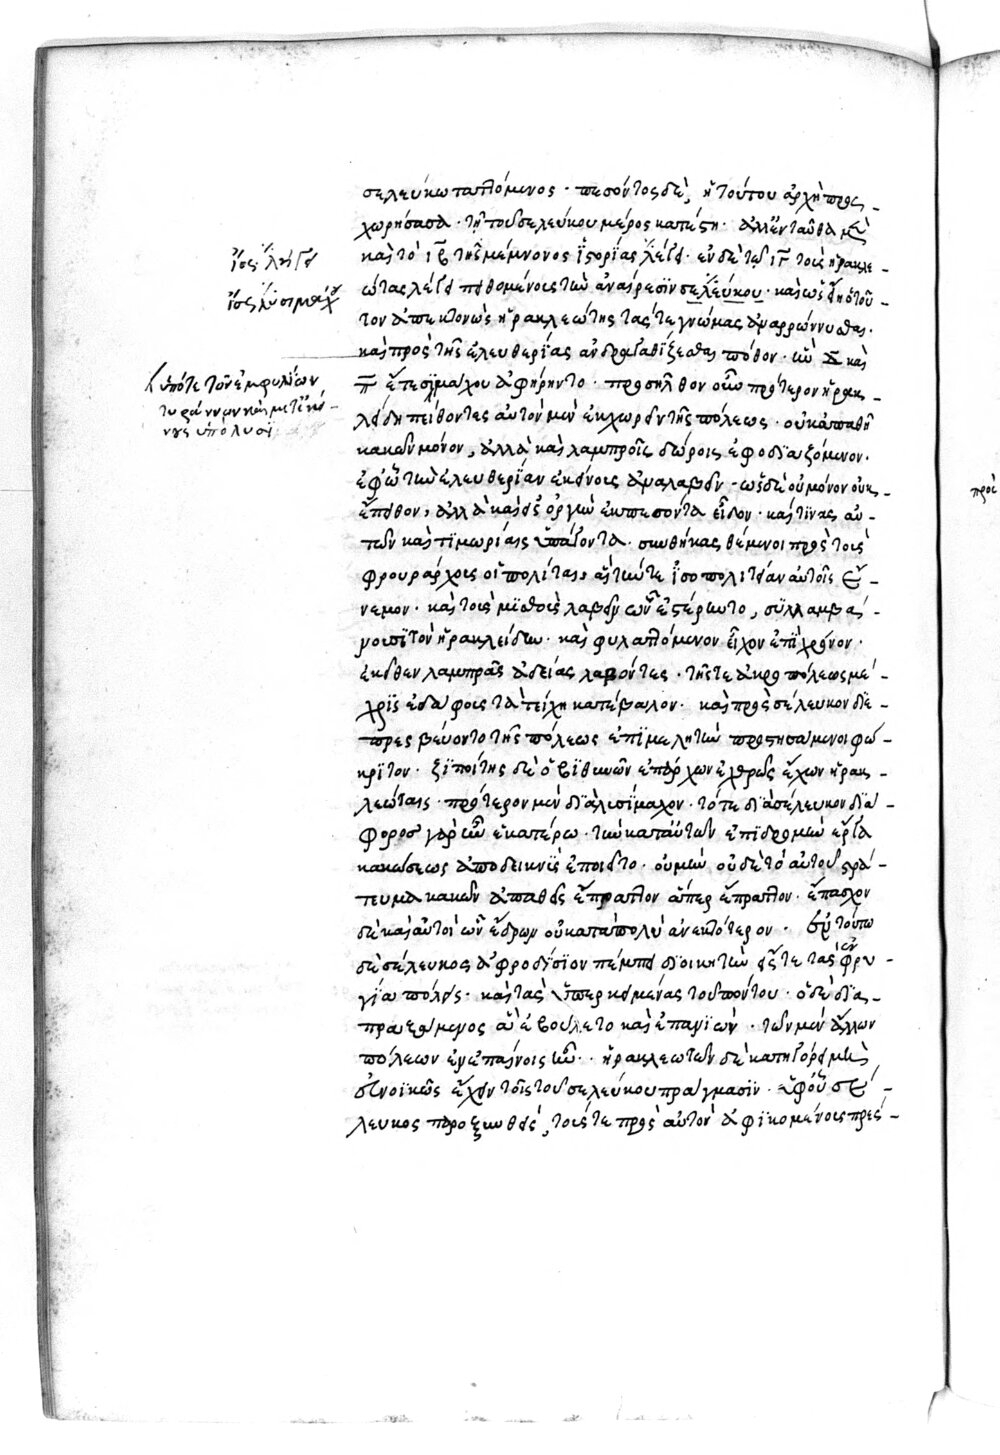 σελεύκω ταττόμενος · πεσόντος δὲ, ἡ τούτου ἀρχὴ προς_
χωρήσασα · τῇ τοῦ σελεύκου μέρος κατέστη · ἀλλ' ἐνταῦθα μὲν
καὶ τὸ ιβ τῆς μέμνονος ἱστορίας λήγει · ἐν δὲ τῷ ιγ τοὺς ἡρακλε
ώτας λέγει πυθομένους τὴν ἀναίρεσιν σελεύκου · καὶ ὡς εἴη ὁ τοῦ-
τον ἀπεκτονὼς ἡρακλεώτης τάς τε γνώμας ἀναρρώννυσθαι ·
καὶ πρὸς τῆς ἐλευθερίας ἀνδραγαθίζεσθαι πόθον · ἣν δ καὶ
π ἔτεσι μάχου ἀφῄρηντο · προσῆλθον οὖν πρότερον ἡρακ_
λείδῃ πείθοντες αὐτὸν μὲν ἐκχωρεῖν τῆς πόλεως · οὐκ ἀπαθῆ
κακῶν μόνον, ἀλλὰ καὶ λαμπροῖς δώροις ἐφοδιαζόμενον ·
ἐφ' ᾧ τὴν ἐλευθερίαν ἐκείνους ἀναλαβεῖν - ὡς δὲ οὐ μόνον οὐκ_
ἔπειθον, ἀλλὰ καὶ εἰς ὀργὴν ἐκπεσόντα εἶδον · καὶ τινας αὐ-
τῶν καὶ τιμωρίαις ὑπάγοντα · συνθήκας θέμενοι πρὸς τοὺς
φρουράρχους οἱ πολῖται, αἳ τήν τε ἰσοπολιτείαν αὐτοῖς ἔ-
νεμον · καὶ τοὺς μισθοὺς λαβεῖν ὧν ἐστέρηντο, συλλαμβά-
νουσι τὸν ἡρακλείδην · καὶ φυλαττόμενον εἶχον ἐπὶ χρόνον ·
ἐκεῖθεν λαμπρᾶς ἀδείας λαβόντες · τῆς τε ἀκροπόλεως μέ-
χρις ἐδάφους τὰ τείχη κατέβαλον · καὶ πρὸς σέλευκον διε-
πρεσβεύοντο τῆς πόλεως ἐπιμελητὴν προστησάμενοι φώ-
κριτον · ζιποίτης δὲ ὁ βιθυνῶν ἐπάρχων ἐχθρῶς ἔχων ἡρακ_
λεώταις · πρότερον μὲν διὰ λυσίμαχον · τότε διὰ σέλευκον διά
φορος γὰρ ἦν ἑκατέρῳ · τὴν κατ' αὐτῶν ἐπιδρομὴν ἔργα
κακώσεως ἀποδεικνὺς ἐποιεῖτο · οὐ μὴν οὐδὲ τὸ αὐτοῦ στρά-
τευμα κακῶν ἀπαθὲς ἔπραττον ἅπερ ἔπραττον · ἔπασχον
δὲ καὶ αὐτοὶ ὧν ἔδρων οὐ κατὰ πολὺ ἀνεκτότερον · ἐν τούτῳ
δὲ σέλευκος ἀφροδίσιον πέμπει διοικητὴν εἴς τε τὰς ἐν φρυ-
γίᾳ πόλεις · καὶ τὰς ὑπερκειμένας τοῦ πόντου · ὁ δὲ δια_
πραξάμενος ἃ ἐβούλετο καὶ ἐπανιὼν · τῶν μὲν ἄλλων
πόλεων ἐν ἐπαίνοις ἦν · ἡρακλεωτῶν δὲ κατηγόρει μὴ
εὐνοϊκῶς ἔχειν τοῖς τοῦ σελεύκου πράγμασιν · ὑφ' οὗ σέ-
λευκος παροξυνθεὶς, τούς τε πρὸς αὐτὸν ἀφικομένους πρέσ-
ἴσως λήγει
ἴσως λυσιμάχου
ὑπό τε τῶν ἐμφυλίων
τυράννων καὶ μετ' ἐκεί_
νους ὑπὸ λυσι
πρὸς